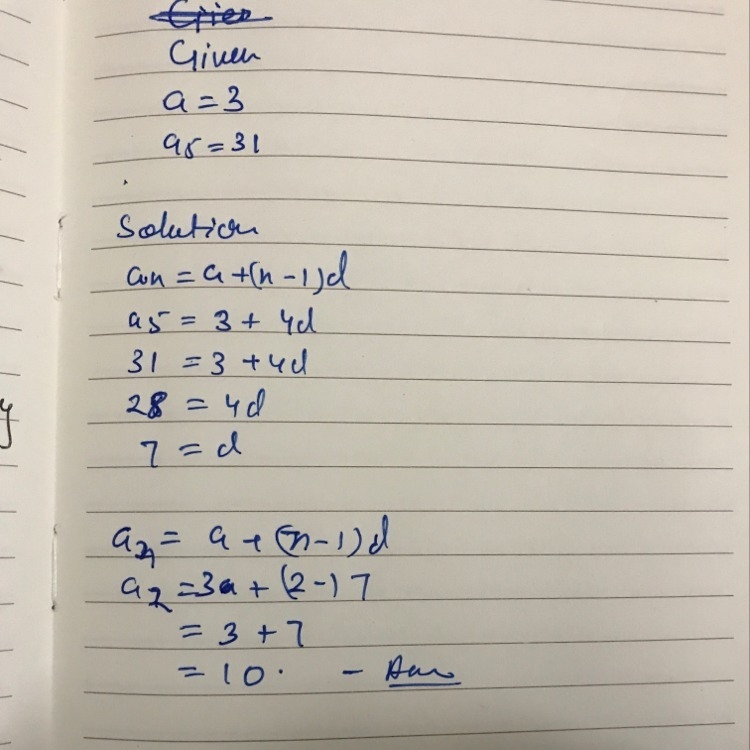 Given
a = 3
a5 = 31
Solution
an = a + (n - 1)d
a5 = 3 + 4d
31 = 3 + 4d
28 = 4d
7 = d
an = a + (n - 1)d
a2 = 3 + (2 -) 7
= 3 + 7
= 10. - Ans
y